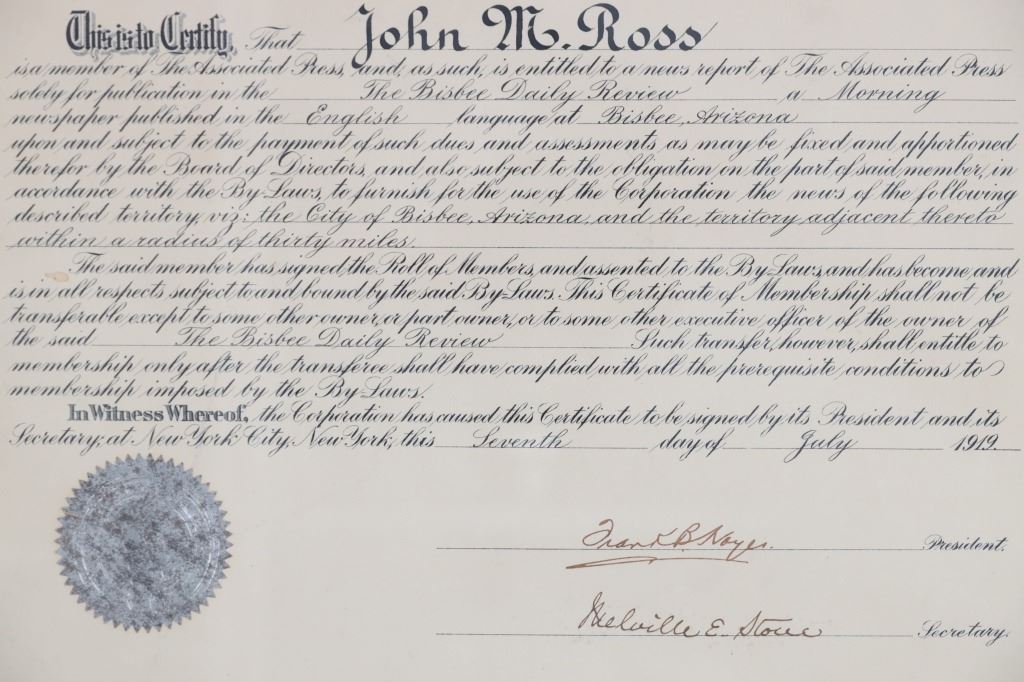 This is to Certify, That John M. Ross
is a member of The Associated Press, and, as such, is entitled to a news report of The Associated Press
solely for publication in the The Bisbee Daily Review a Morning
newspaper published in the English language at Bisbee, Arizona
upon and subject to the payment of such dues and assessments as may be fixed and apportioned
therefor by the Board of Directors, and also subject to the obligation on the part of said member, in
accordance with the By-Laws, to furnish for the use of the Corporation the news of the following
described territory, viz: the City of Bisbee, Arizona, and the territory adjacent thereto
within a radius of thirty miles.
The said member has signed the Roll of Members, and assented to the By-Laws, and has become, and
is, in all respects subject to and bound by the said By-Laws. This Certificate of Membership shall not be
transferable except to some other owner, or part owner, or to some other executive officer of the owner of
the said The Bisbee Daily Review Such transfer, however, shall entitle to
membership only after the transferee shall have complied with all the prerequisite conditions to
membership imposed by the By-Laws.
In Witness Whereof, the Corporation has caused this Certificate to be signed by its President and its
Secretary, at New York City, New York, this Seventh day of July 1919.
Frank B. Noyes. President.
Melville E. Stone Secretary.